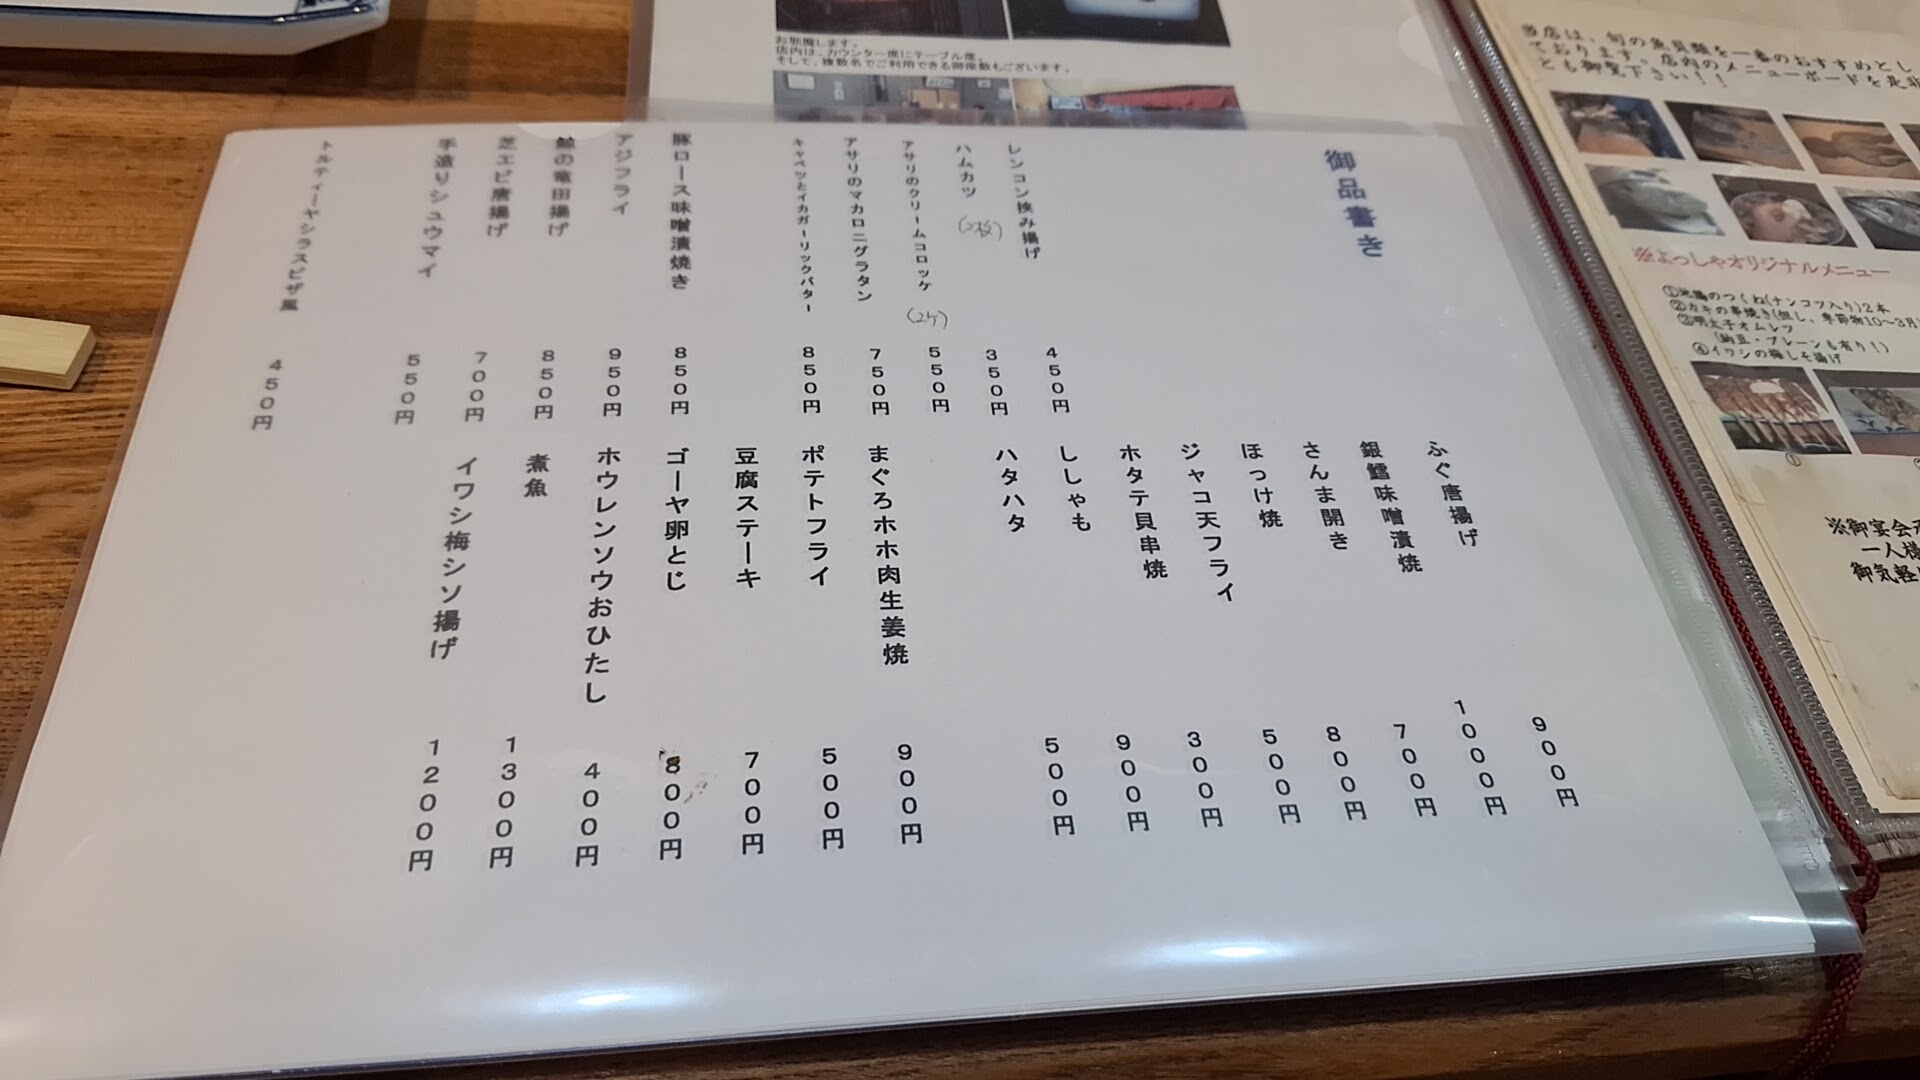 お邪魔します。
店内は、カウンター席にテーブル席。
そして、複数名でご利用できる御座敷もございます。
御品書き
レンコン挟み揚げ 450円
ハムカツ (2枚) 350円
アサリのクリームコロッケ (2ケ) 550円
アサリのマカロニグラタン 750円
キャベツとイカガーリックバター 850円
豚ロース味噌漬焼き 850円
アジフライ 950円
鯨の竜田揚げ 850円
芝エビ唐揚げ 700円
手造りシュウマイ 550円
トルティーヤシラスピザ風 450円
ふぐ唐揚げ 900円
銀鱈味噌漬焼 1000円
さんま開き 700円
ほっけ焼 800円
ジャコ天フライ 500円
ホタテ貝串焼 300円
ししゃも 900円
ハタハタ 500円
まぐろホホ肉生姜焼 900円
ポテトフライ 500円
豆腐ステーキ 700円
ゴーヤ卵とじ 800円
ホウレンソウおひたし 400円
煮魚 1300円
イワシ梅シソ揚げ 1200円
当店は、旬の魚貝類を一番のおすすめとし
ております。店内のメニューボードを是非
とも御覧下さい！！
※よっしゃオリジナルメニュー
①地鶏のつくね(ナンコツ入り)2本
②カキの串焼き(但し、季節物10～3月)
③明太子オムレツ
(納豆・プレーンも有り！)
④イワシの梅しそ揚げ
①
※御宴会
一人様
御気軽